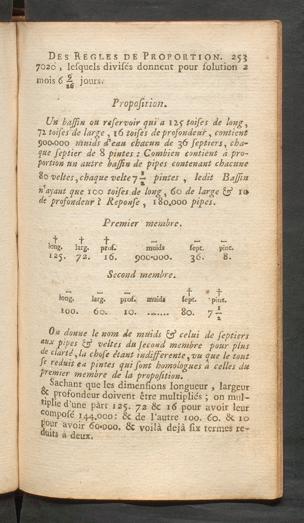 DES REGLES DE PROPORTION. 253
7020, lesquels divisés donnent pour solution 2
mois 6 6/26 jours.
Proposition.
Un bassin ou reservoir qui a 125 toises de long,
72 toises de large, 16 toises de profondeur, contient
900.000 muids d'eau chacun de 36 septiers, cha-
que septier de 8 pintes : Combien contient à pro-
portion un autre bassin de pipes contenant chacune
80 veltes, chaque velte 7 1/2 pintes, ledit Bassin
n'ayant que 100 toises de long, 60 de large & 10
de profondeur ? Reponse, 180,000 pipes.
Premier membre.
† † † — — —
long. larg. prof. muids sept. pint.
125. 72. 16. 900.000. 36. 8.
Second membre.
— — — † †
long. larg. prof. muids sept. pint.
100. 60. 10. ....... 80. 7 1/2
On donne le nom de muids & celui de septiers
aux pipes & veltes du second membre pour plus
de clarté, la chose étant indifferente, vu que le tout
se reduit en pintes qui sont homologues à celles du
premier membre de la proposition.
Sachant que les dimensions longueur, largeur
& profondeur doivent être multipliés ; on mul-
tiplie d'une part 125. 72 & 16 pour avoir leur
composé 144.000: & de l'autre 100. 60. & 10
pour avoir 60.000. & voilà dejà six termes re-
duits à deux.